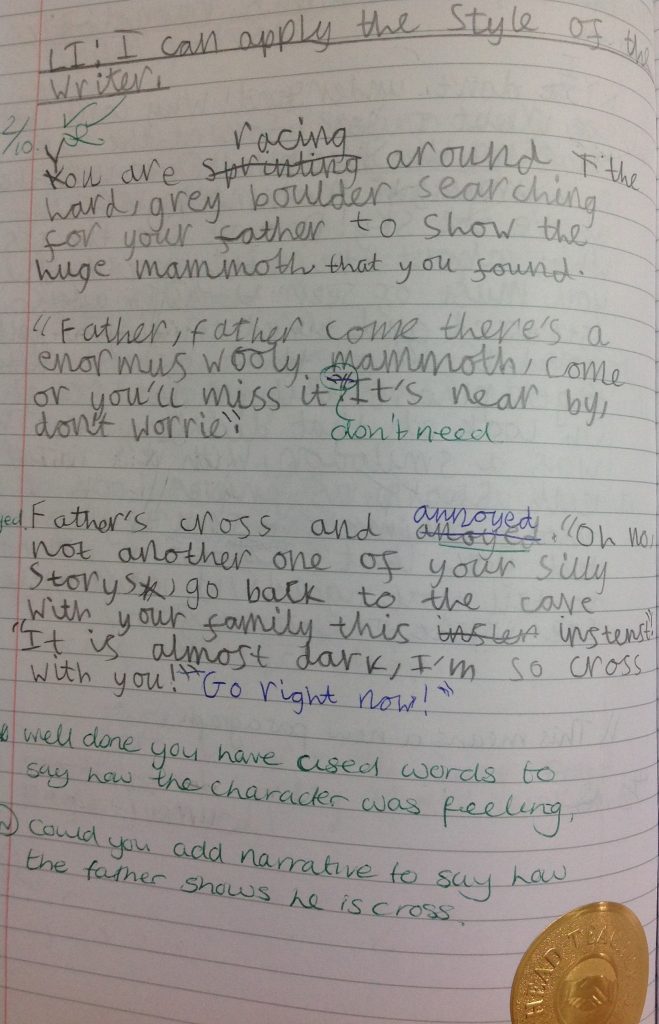 LI: I can apply the style of the
writer.
2/10
racing
You are sprinting around the
hard, grey boulder searching
for your father to show the
huge mammoth that you found.
"Father, father come there's a
enormus wooly mammoth, come
or you'll miss it It's near by,
don't worrie".
don't need
annoyed
Father's cross and anoyed. "Oh no,
not another one of your silly
storys, go back to the cave
with your family this insten instenst"
"It is almost dark, I'm so cross
with you!" "Go right now!"
well done you have used words to
say how the character was feeling.
could you add narrative to say how
the father shows he is cross.
HEAD TEAC